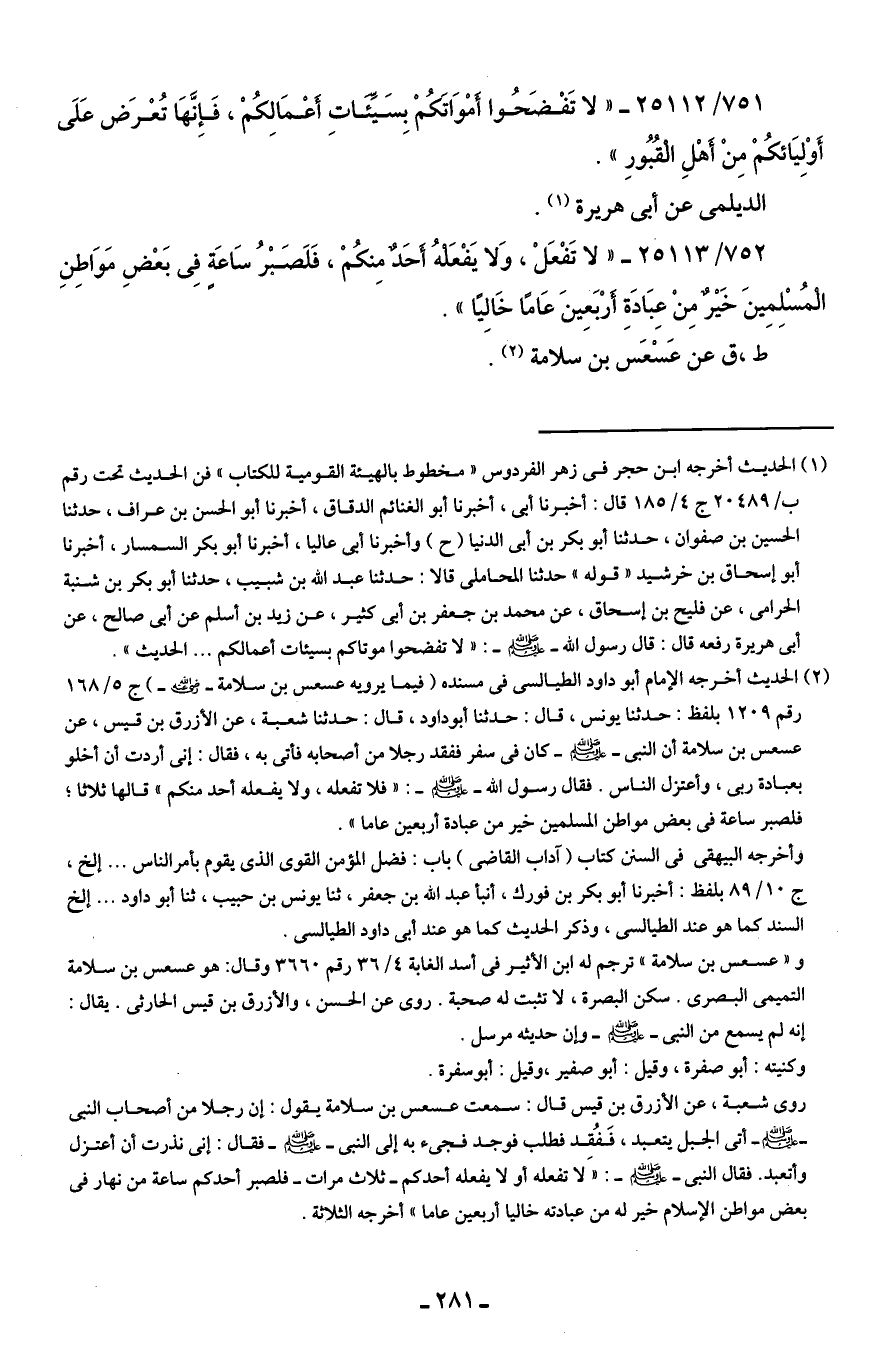 ٢٥١١٢/٧٥١ ـ « لا تَفْضَحُوا أَمْوَاتَكُمْ بِسَيِّئَاتِ أَعْمَالِكُمْ ، فَإِنَّهَا تُعْرَض عَلَى
أَوْلِيَائكُمْ مِنْ أَهْلِ الْقُبُورِ » .
الديلمى عن أبى هريرة (١) .
٢٥١١٣/٧٥٢ ـ « لا تَفْعَلْ ، وَلا يَفْعَلْهُ أَحَدٌ منكُمْ ، فَلَصَبْرُ سَاعَةٍ فِى بَعْضِ مَوَاطِنِ
الْمُسْلِمِينَ خَيْرٌ مِنْ عِبَادَةِ أَرْبَعِينَ عَامًا خَالِيًا » .
ط ،ق عن عَسْعَس بن سلامة (٢) .
(١) الحديث أخرجه ابن حجر فى زهر الفردوس « مخطوط بالهيئة القومية للكتاب » فن الحديث تحت رقم
ب/ ٢٠٤٨٩ ج ٤/ ١٨٥ قال : أخبرنا أبى ، أخبرنا أبو الغنائم الدقاق ، أخبرنا أبو الحسن بن عراف ، حدثنا
الحسين بن صفوان ، حدثنا أبو بكر بن أبى الدنيا ( ح ) وأخبرنا أبى عاليا ، أخبرنا أبو بكر السمسار ، أخبرنا
أبو إسحاق بن خرشيد « قوله » حدثنا المحاملى قالا : حدثنا عبد الله بن شبيب ، حدثنا أبو بكر بن شنبة
الحرامى ، عن فليح بن إسحاق ، عن محمد بن جعفر بن أبى كثير ، عن زيد بن أسلم عن أبى صالح ، عن
أبى هريرة رفعه قال : قال رسول الله ـ ﷺ ـ : « لا تفضحوا موتاكم بسيئات أعمالكم ... الحديث » .
(٢) الحديث أخرجه الإمام أبو داود الطيالسى فى مسنده ( فيما يرويه عسعس بن سلامة ـ رضي الله عنه ـ ) ج ٥/ ١٦٨
رقم ١٢٠٩ بلفظ : حدثنا يونس ، قال : حدثنا أبوداود ، قال : حدثنا شعبة ، عن الأزرق بن قيس ، عن
عسعس بن سلامة أن النبى ـ ﷺ ـ كان فى سفر ففقد رجلا من أصحابه فأتى به ، فقال : إنى أردت أن أخلو
بعبادة ربى ، وأعتزل الناس . فقال رسول الله ـ ﷺ ـ : « فلا تفعله ، ولا يفعله أحد منكم » قالها ثلاثا ؛
فلصبر ساعة فى بعض مواطن المسلمين خير من عبادة أربعين عاما » .
وأخرجه البيهقى فى السنن كتاب ( آداب القاضى ) باب : فضل المؤمن القوى الذى يقوم بأمرالناس ... إلخ ،
ج ١٠/ ٨٩ بلفظ : أخبرنا أبو بكر بن فورك ، أنبأ عبد الله بن جعفر ، ثنا يونس بن حبيب ، ثنا أبو داود ... إلخ
السند كما هو عند الطيالسى ، وذكر الحديث كما هو عند أبى داود الطيالسى .
و « عسعس بن سلامة » ترجم له ابن الأثير فى أسد الغابة ٤/ ٣٦ رقم ٣٦٦٠ وقال: هو عسعس بن سلامة
التميمى البصرى . سكن البصرة ، لا تثبت له صحبة . روى عن الحسن ، والأزرق بن قيس الحارثى . يقال :
إنه لم يسمع من النبى ـ ﷺ ـ وإن حديثه مرسل .
وكنيته : أبو صفرة ، وقيل : أبو صفير ،وقيل : أبوسفرة .
روى شعبة ، عن الأزرق بن قيس قال : سمعت عسعس بن سلامة يقول : إن رجلا من أصحاب النبى
ـ ﷺ ـ أتى الجبل يتعبد ، فَفُقِد فطلب فوجد فجىء به إلى النبى ـ ﷺ ـ فقال : إنى نذرت أن أعتزل
وأتعبد. فقال النبى ـ ﷺ ـ : « لا تفعله أو لا يفعله أحدكم ـ ثلاث مرات ـ فلصبر أحدكم ساعة من نهار فى
بعض مواطن الإسلام خير له من عبادته خاليا أربعين عاما » أخرجه الثلاثة .
ـ ٢٨١ ـ